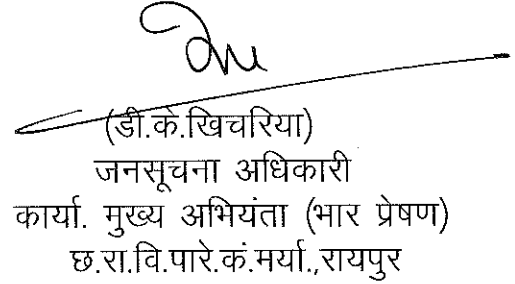 (डी.के.खिचरिया)
जनसूचना अधिकारी
कार्या. मुख्य अभियंता (भार प्रेषण)
छ.रा.वि.पारे.कं.मर्या.,रायपुर